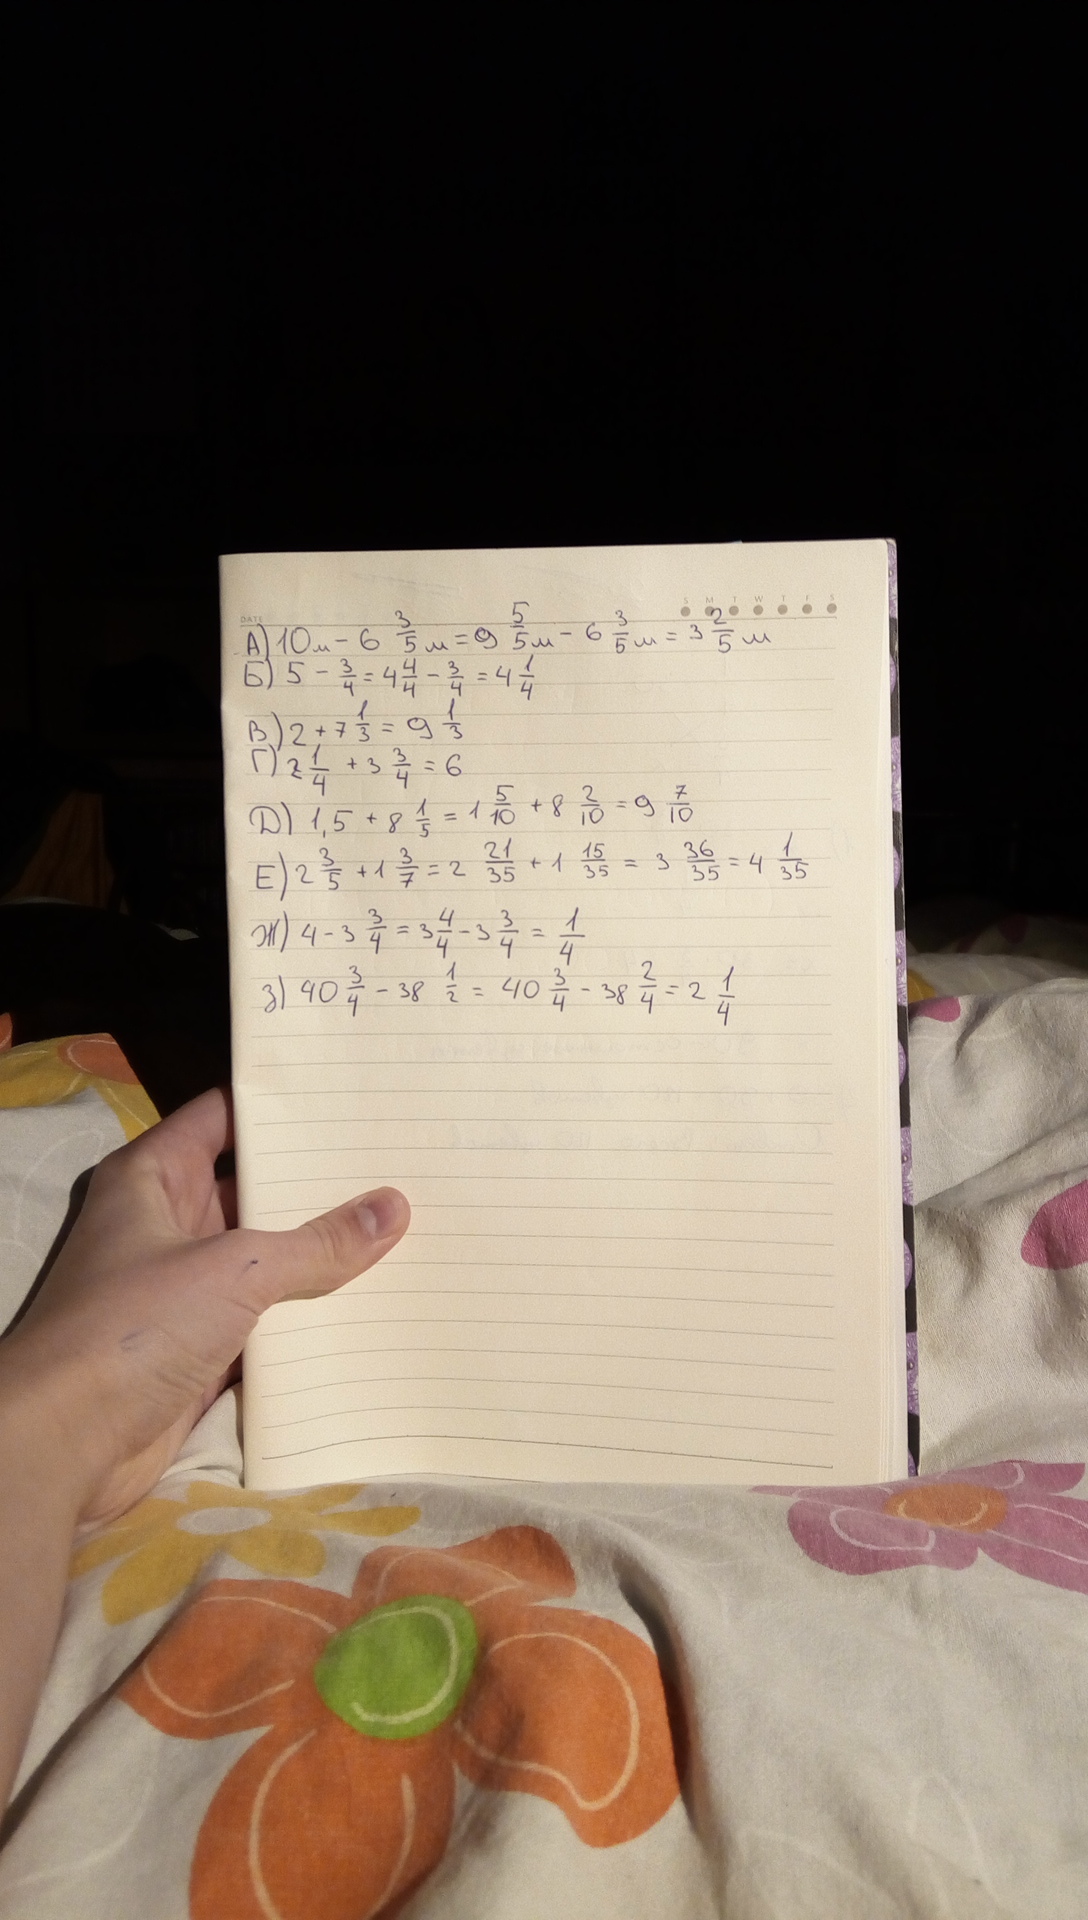 DATE
S M T W T F S
А) 10м - 6 3/5 м = 9 5/5 м - 6 3/5 м = 3 2/5 м
Б) 5 - 3/4 = 4 4/4 - 3/4 = 4 1/4
В) 2 + 7 1/3 = 9 1/3
Г) 2 1/4 + 3 3/4 = 6
D) 1,5 + 8 1/5 = 1 5/10 + 8 2/10 = 9 7/10
Е) 2 3/5 + 1 3/7 = 2 21/35 + 1 15/35 = 3 36/35 = 4 1/35
Ж) 4 - 3 3/4 = 3 4/4 - 3 3/4 = 1/4
З) 40 3/4 - 38 1/2 = 40 3/4 - 38 2/4 = 2 1/4